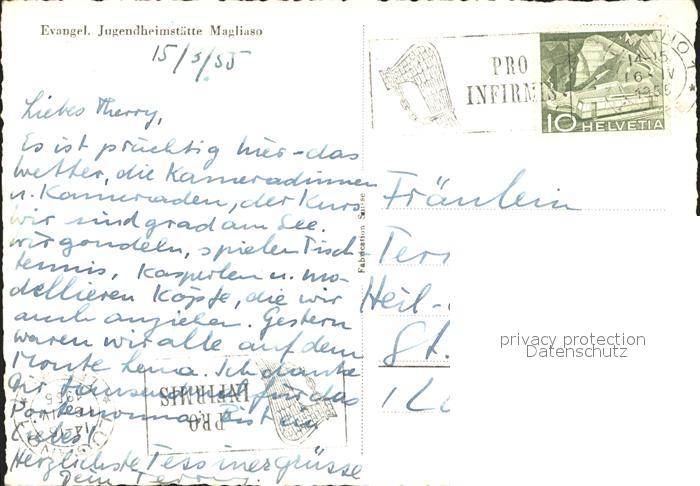 Evangel. Jugendheimstätte Magliaso
15/5/55
Liebes Therry,
Es ist prächtig hier - das
Wetter, die Kameradinnen
u. Kameraden, der Kurs
wir sind grad am See.
wir gondeln, spielen Tisch-
tennis, Kasperlen u. mo-
dellieren Köpfe, die wir
auch anziehen. Gestern
waren wir alle auf dem
Monte Lema. Ich danke
Dir tausendmal für das
Portemonnaie. Bist ein
Liebes!
Herzlichste Tessinergrüsse
Dein
PRO
INFIRMIS
14-15
1955
10 HELVETIA
Fabrication Suisse
Fräulein
Heil-
St.
privacy protection
Datenschutz
PRO
INFIRMIS